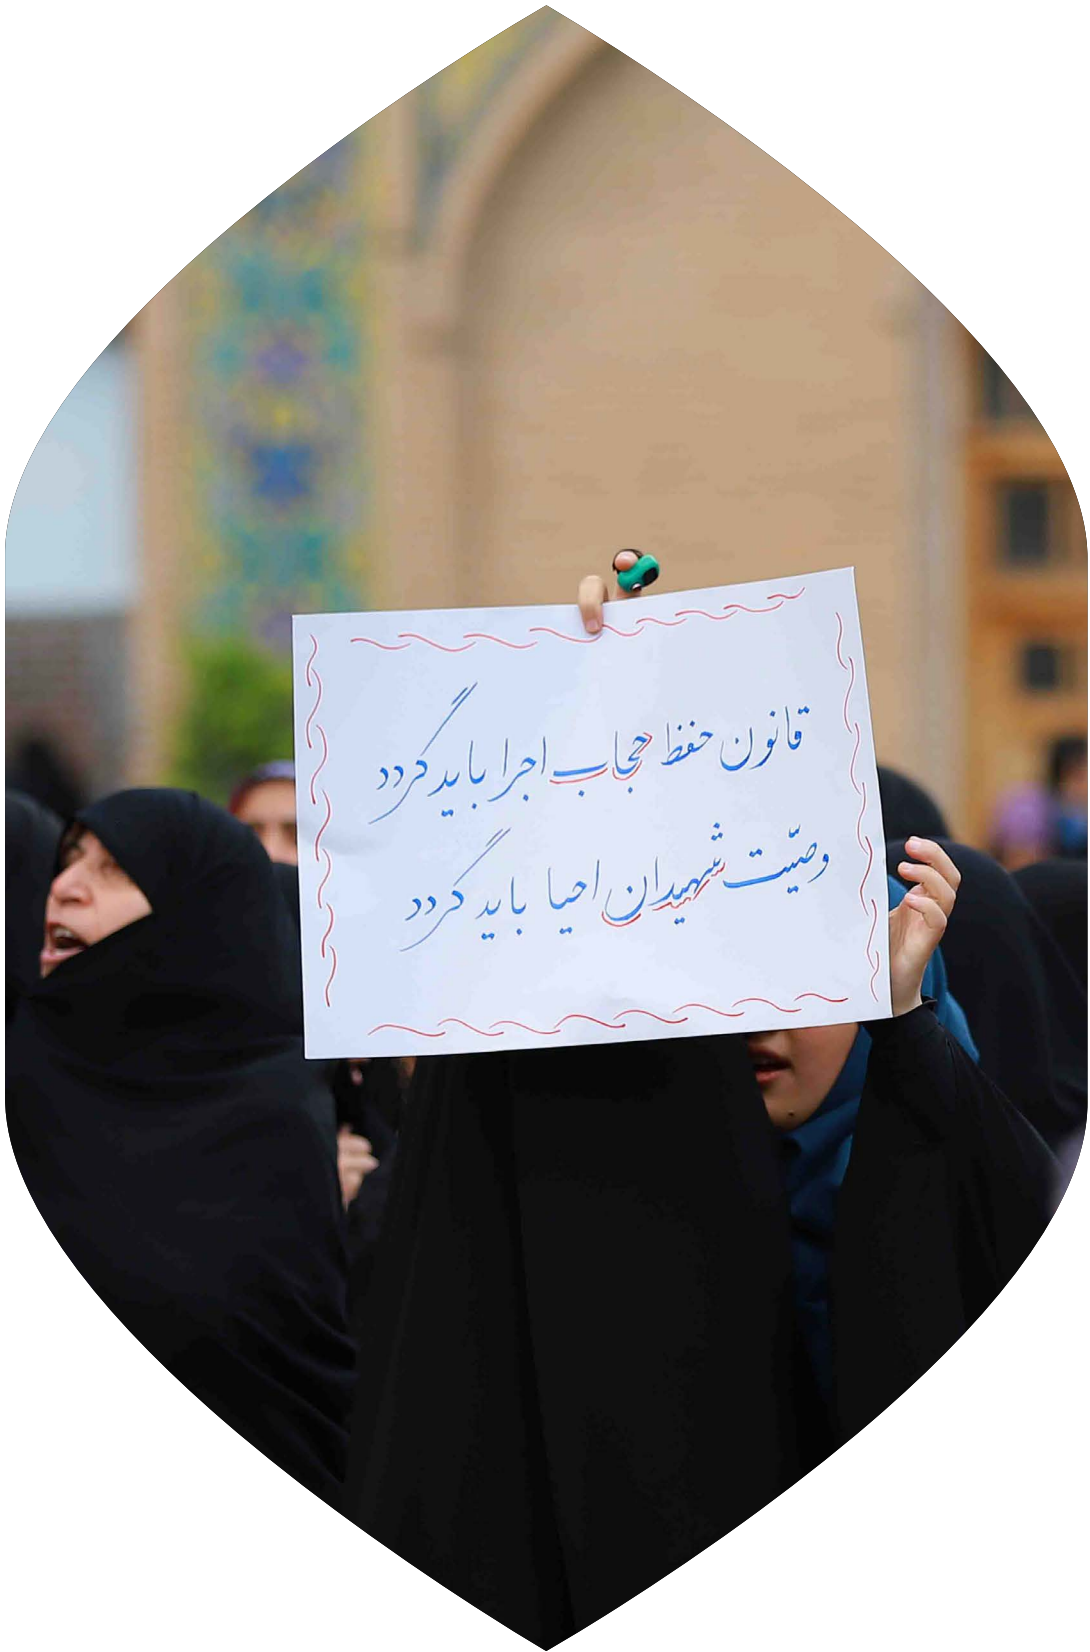 قانون حفظ حجاب اجرا باید گردد
وصیّت شهیدان احیا باید گردد